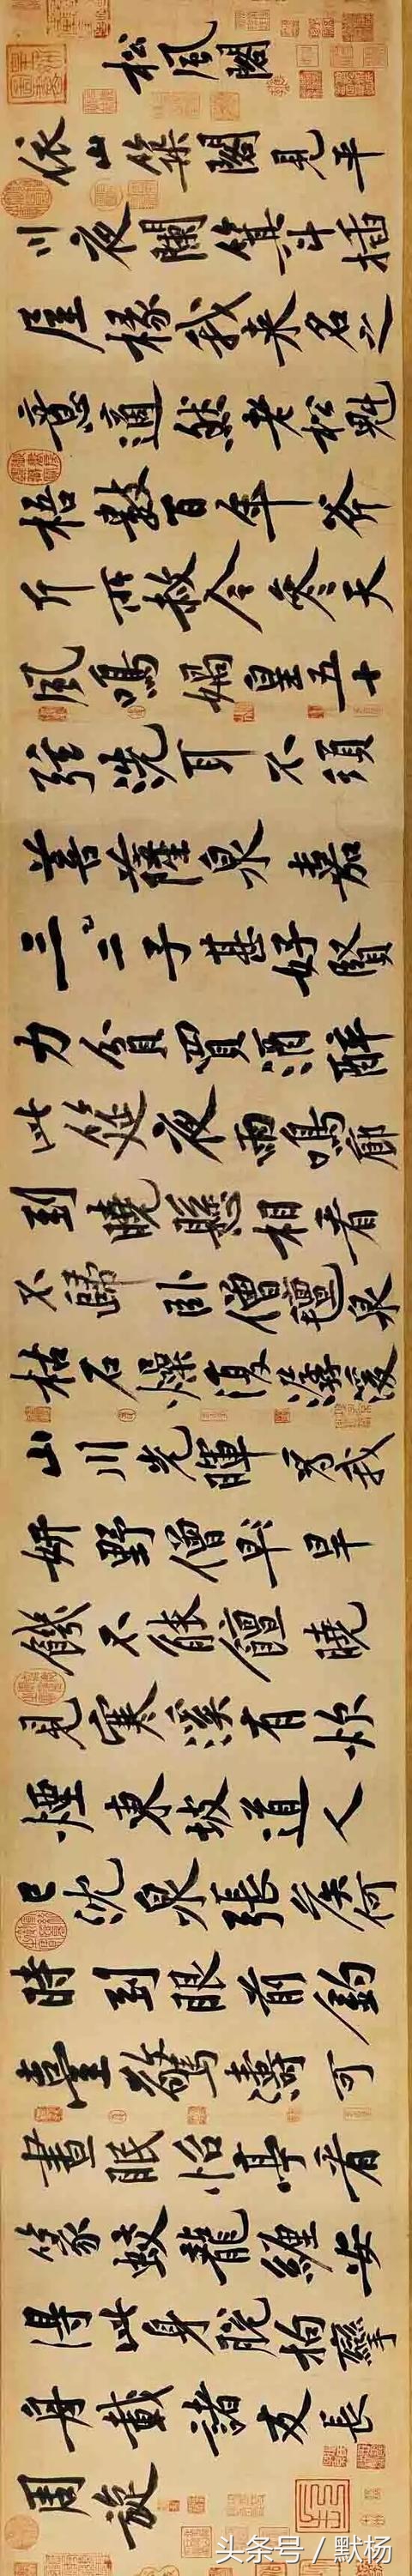 松風閣
依山築閣見平
川夜闌箕斗插
屋椽我來名之
意適然老松魁
梧數百年斧
斤所赦今參天
風鳴媧皇五十
弦洗耳不須
菩薩泉嘉
三二子甚好賢
力貧買酒醉
此筵夜雨鳴廊
到曉懸相看
不歸臥僧氈泉
枯石燥復潺湲
山川光暉為我
妍野僧早旱
飢不能饘曉
見寒溪有炊
煙東坡道人
已沈泉張侯何
時到眼前釣
臺驚濤可
晝眠怡亭看
篆蛟龍纏安
得此身脫拘攣
舟載諸友長
周旋
头条号 / 默杨